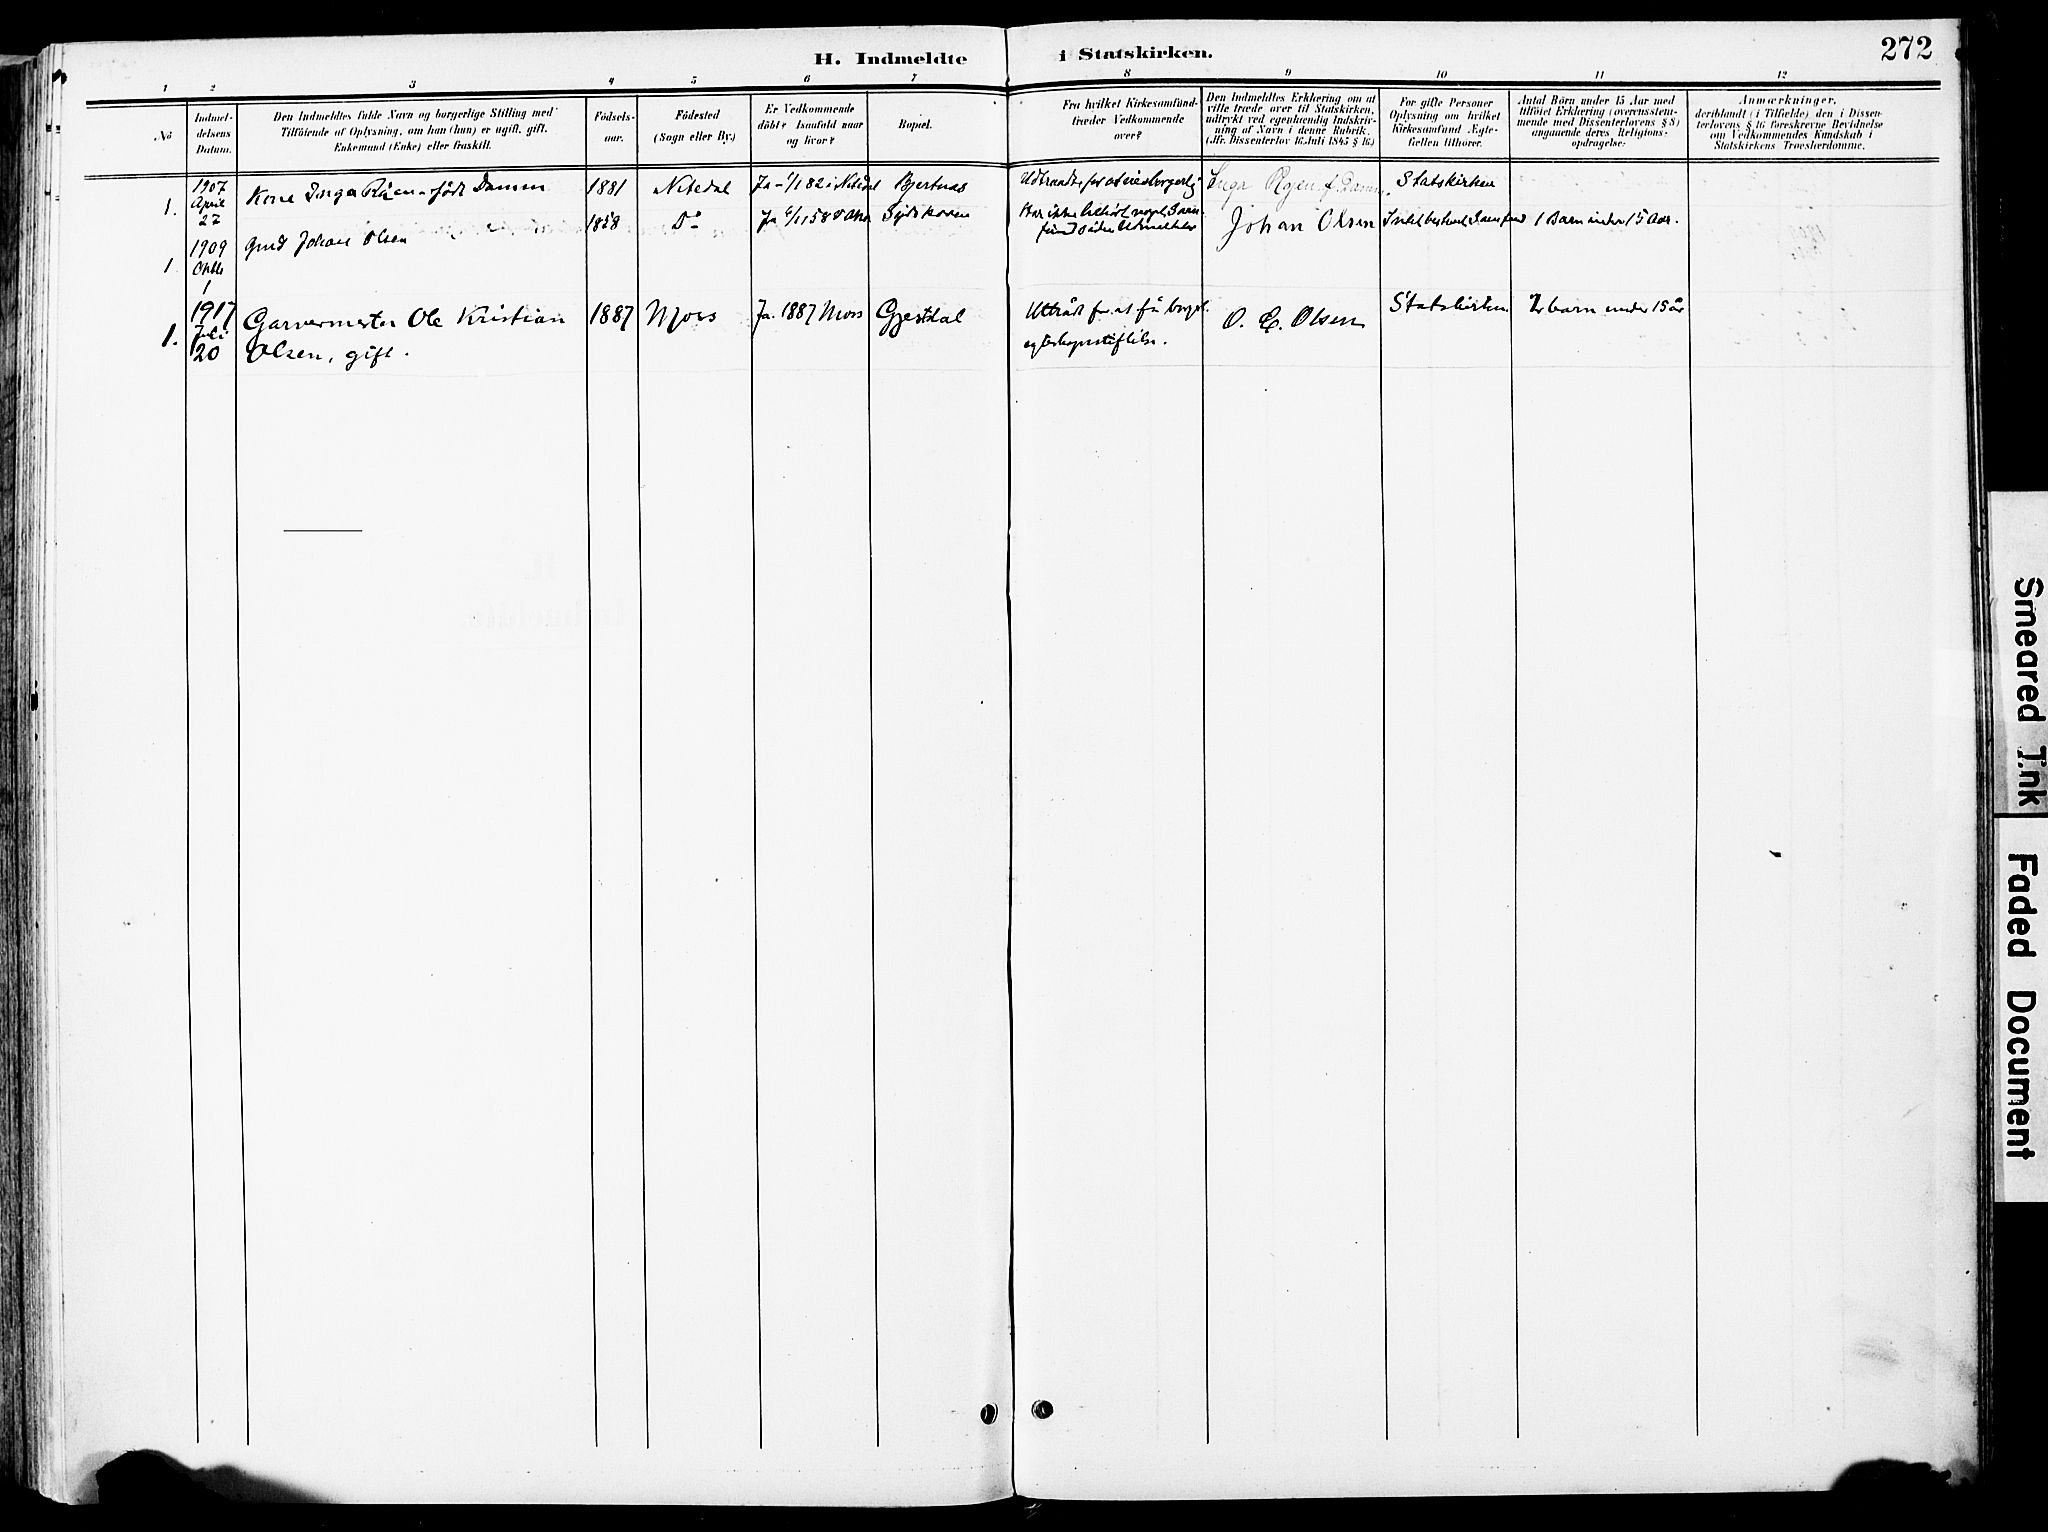 272
H. Indmeldte i Statskirken.
1 2 3 4 5 6 7 8 9 10 11 12
No
Indmel-
delsens
Datum.
Den Indmeldtes fulde Navn og borgerlige Stilling med
Tilföiende af Oplysning, om han (hun) er ugift, gift,
Enkemand (Enke) eller fraskilt.
Födsels-
aar.
Födested
(Sogn eller By.)
Er Vedkommende
döbt? Isaafald naar
og hvor?
Bopæl.
Fra hvilket Kirkesamfund
træder Vedkommende
over?
Den Indmeldtes Erklæring om at
ville træde over til Statskirken,
udtrykt ved egenhændig Indskriv-
ning af Navn i denne Rubrik.
(Jfr. Dissenterlov 16. Juli 1845 § 16.)
For gifte Personer
Oplysning om hvilket
Kirkesamfund Ægte-
fællen tilhörer.
Antal Börn under 15 Aar med
tilföiet Erklæring (overensstem-
mende med Dissenterlovens § 8)
angaaende deres Religions-
opdragelse:
Anmærkninger,
deriblandt (i Tilfælde) den i Dissen-
terlovens § 16 foreskrevne Bevidnelse
om Vedkommendes Kundskab i
Statskirkens Troeslærdomme.
1.
1907
April
27
Kone Inga født Damm
1881
Nitedal
Ja - 1/1 82 i Nitedal
Bjertnæs
Udtraadte for at
Inga f. Damm.
Statskirken
1
1909
Oktbr
1
Gmd Johan Olsen
1858
Do
Har ikke tilhørt noget Sam-
fund siden Udmeldelse
Johan Olsen
1 Barn under 15 Aar.
1.
1917
Juli
20
Garvermester Ole Kristian
Olsen, gift.
1887
Moss
Ja. 1887 Moss
Gjestdal
Utträdt for at få borgl.
egteskapsstiftelse.
O. C. Olsen
Statskirken
barn under 15 år
Smeared Ink
Faded Document